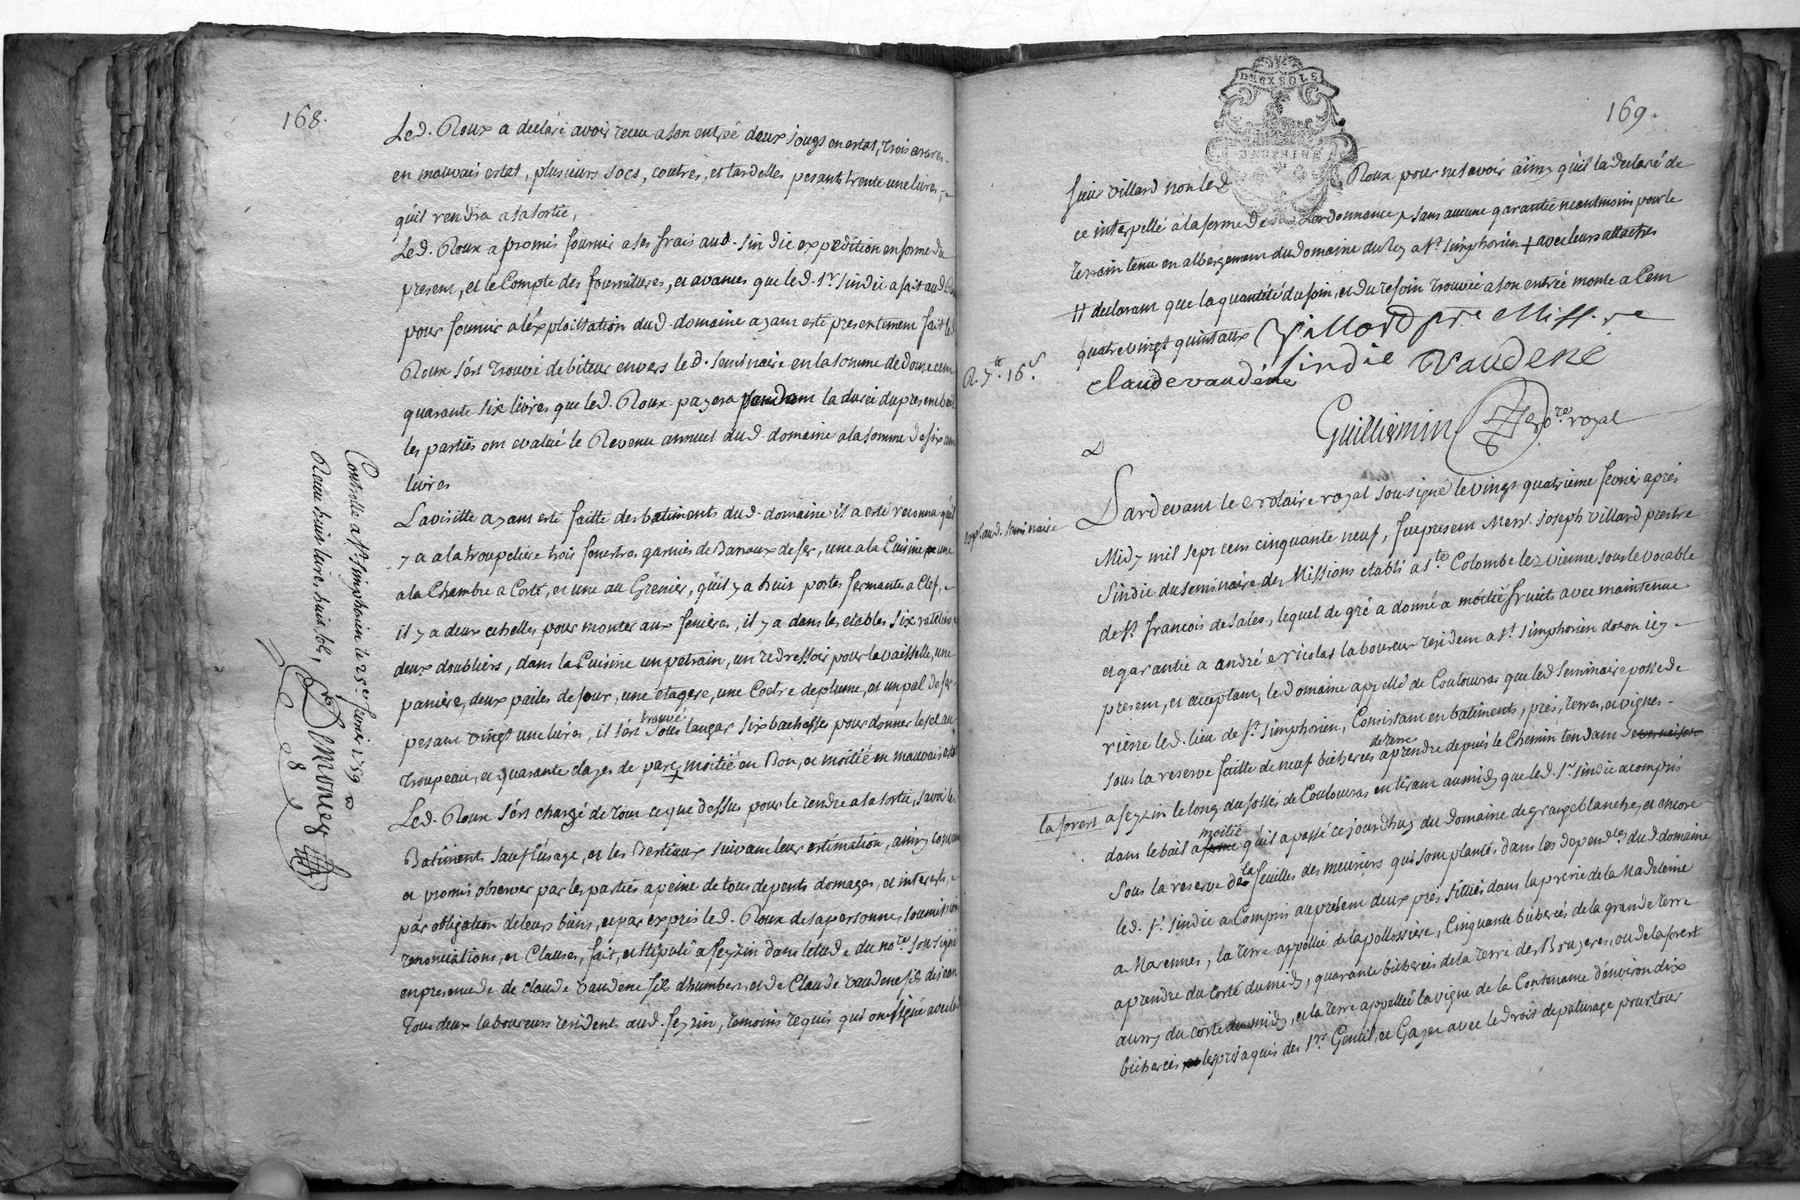 168.
Led. Roux a declaré avoir receu a son entrée deux jougs en estat, trois araires
en mauvais estat, plusieurs socs, coutres, et tardelles pesants trente une livres,
qu'il rendra a sa sortie,
Led. Roux a promis fournir a ses frais aud. sindic expedition en forme du
present, et le Compte des fournitures, et avances que led. sr. sindic a fait aud.
pour fournir a l'exploittation dud. domaine ayant esté presentement fait led.
Roux s'est trouvé debiteur envers led. seminaire en la somme de douze cent
quarante six livres que led. Roux payera pendant la durée du present bail
les parties ont evalué le Revenu annuel dud. domaine a la somme de six cent
livres
La visitte ayant esté faitte des batiments dud. domaine il a esté reconnu qu'il
y a a la troupeliere trois fenestres garnies de Baraux de fer, une a la Cuisine une
a la Chambre a Costé, et une au Grenier, qu'il y a huit portes fermantes a Clef,
il y a deux echelles pour monter aux fenieres, il y a dans les etables six rateliers
deux doubliers, dans la Cuisine un petrain, un redressoir pour la vaisselle, une
paniere, deux pailes de four, une etagere, une Coetre de plume, et un pal de fer
pesant vingt une livres, il s'est trouvé sous l'angar six bachasses pour donner le sel au
troupeau, et quarante clayes de parc moitié en Bon, et moitié en mauvais estat
Led. Roux s'est chargé de tout ce que dessus pour le rendre a sa sortie, savoir les
Batiments sauf l'usage, et les Bestiaux suivant leur estimation, ainsy convenu
et promis observer par les parties a peine de tous depents domages, et interests,
par obligation de leurs biens, et par exprès led. Roux de sa personne, soumissions
renonciations, et Clauses, fait, et stipulé a feyzin dans l'etude du nore. sousigné
en presence de claude vaudene fils d'humbert, et de Claude vaudene fils de jean
tous deux laboureurs residents aud. feyzin, temoins requis qui ont signé avec led.
Controllé a st. simphorien le 25e. fevrier 1759
Receu huit livres, huit sols,
169.
DEUX SOLS
DAUPHINE
sieur villard non led. Roux pour ne savoir ainsy qu'il la declaré de
ce interpellé a la forme de l'ordonnance, sans aucune garantie neantmoins pour le
terrain tenu en albergement du domaine du roy a st. simphorien + avec leurs attaches
# declarant que la quantité du foin, et du refoin trouvée a son entrée monte a cent
quatre vingt quintaux Villard ptre. Miss.re
sindic Vaudene
claude vaudéne
R. 7 lt. 16 s
Guilliermin nore royal
exp. aud. seminaire
Pardevant le notaire royal sousigné le vingt quatrieme fevrier après
Midy mil sept cent cinquante neuf, fut present Messe. joseph villard prestre
sindic du seminaire des Missions etabli a ste. Colombe lez vienne sous le vocable
de st. francois de sales, lequel de gré a donné a moitié fruits avec maintenue
et garantie a andré nicolas laboureur resident a st. simphorien dozon icy
present, et acceptant, le domaine appellé de Coulouvras que led. seminaire possede
riere led. lieu de st. simphorien, Consistant en batiments, prés, terres, et vignes
sous la reserve faitte de neuf bicherées de terre a prendre depuis le Chemin tendant
la forest
a feyzin le long du fossés de Coulouvras en tirant au midy que led. sr. sindic a compris
dans le bail a moitié qu'il a passé ce jourdhuy du domaine de grangeblanche, et encore
sous la reserve de la feuilles des meuriers qui sont plantés dans les dependces. dud domaine
led. sr. sindic a Compris au present deux prés situés dans la prairie de la Madeleine
a Marennes, la terre appellée de la pollossiere, Cinquante bicherées de la grande terre
a prendre du costé du midy, quarante bicherées de la terre des Bruyeres, ou de la forest
aussy du costé du midy, et la terre appellée la vigne de la Contenance d'environ dix
bicherées, le pré aquis des srs. Gentil, et Gayet avec le droit de paturage pour tous